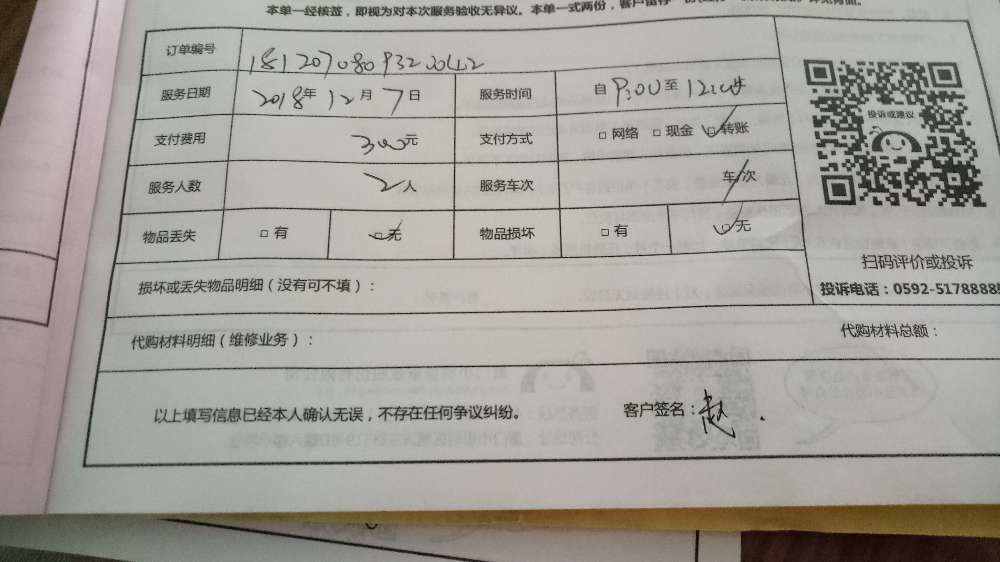 本单一经核签，即视为对本次服务验收无异议。本单一式两份，客户留存一份
订单编号
服务日期 2018年12月7日 服务时间 自9:00至12:00
支付费用 300元 支付方式 □网络 □现金 ☑转账
服务人数 2人 服务车次 车/次
物品丢失 □有 ☑无 物品损坏 □有 ☑无
投诉或建议
扫码评价或投诉
投诉电话：0592-5178888
损坏或丢失物品明细（没有可不填）：
代购材料明细（维修业务）： 代购材料总额：
以上填写信息已经本人确认无误，不存在任何争议纠纷。 客户签名：赵